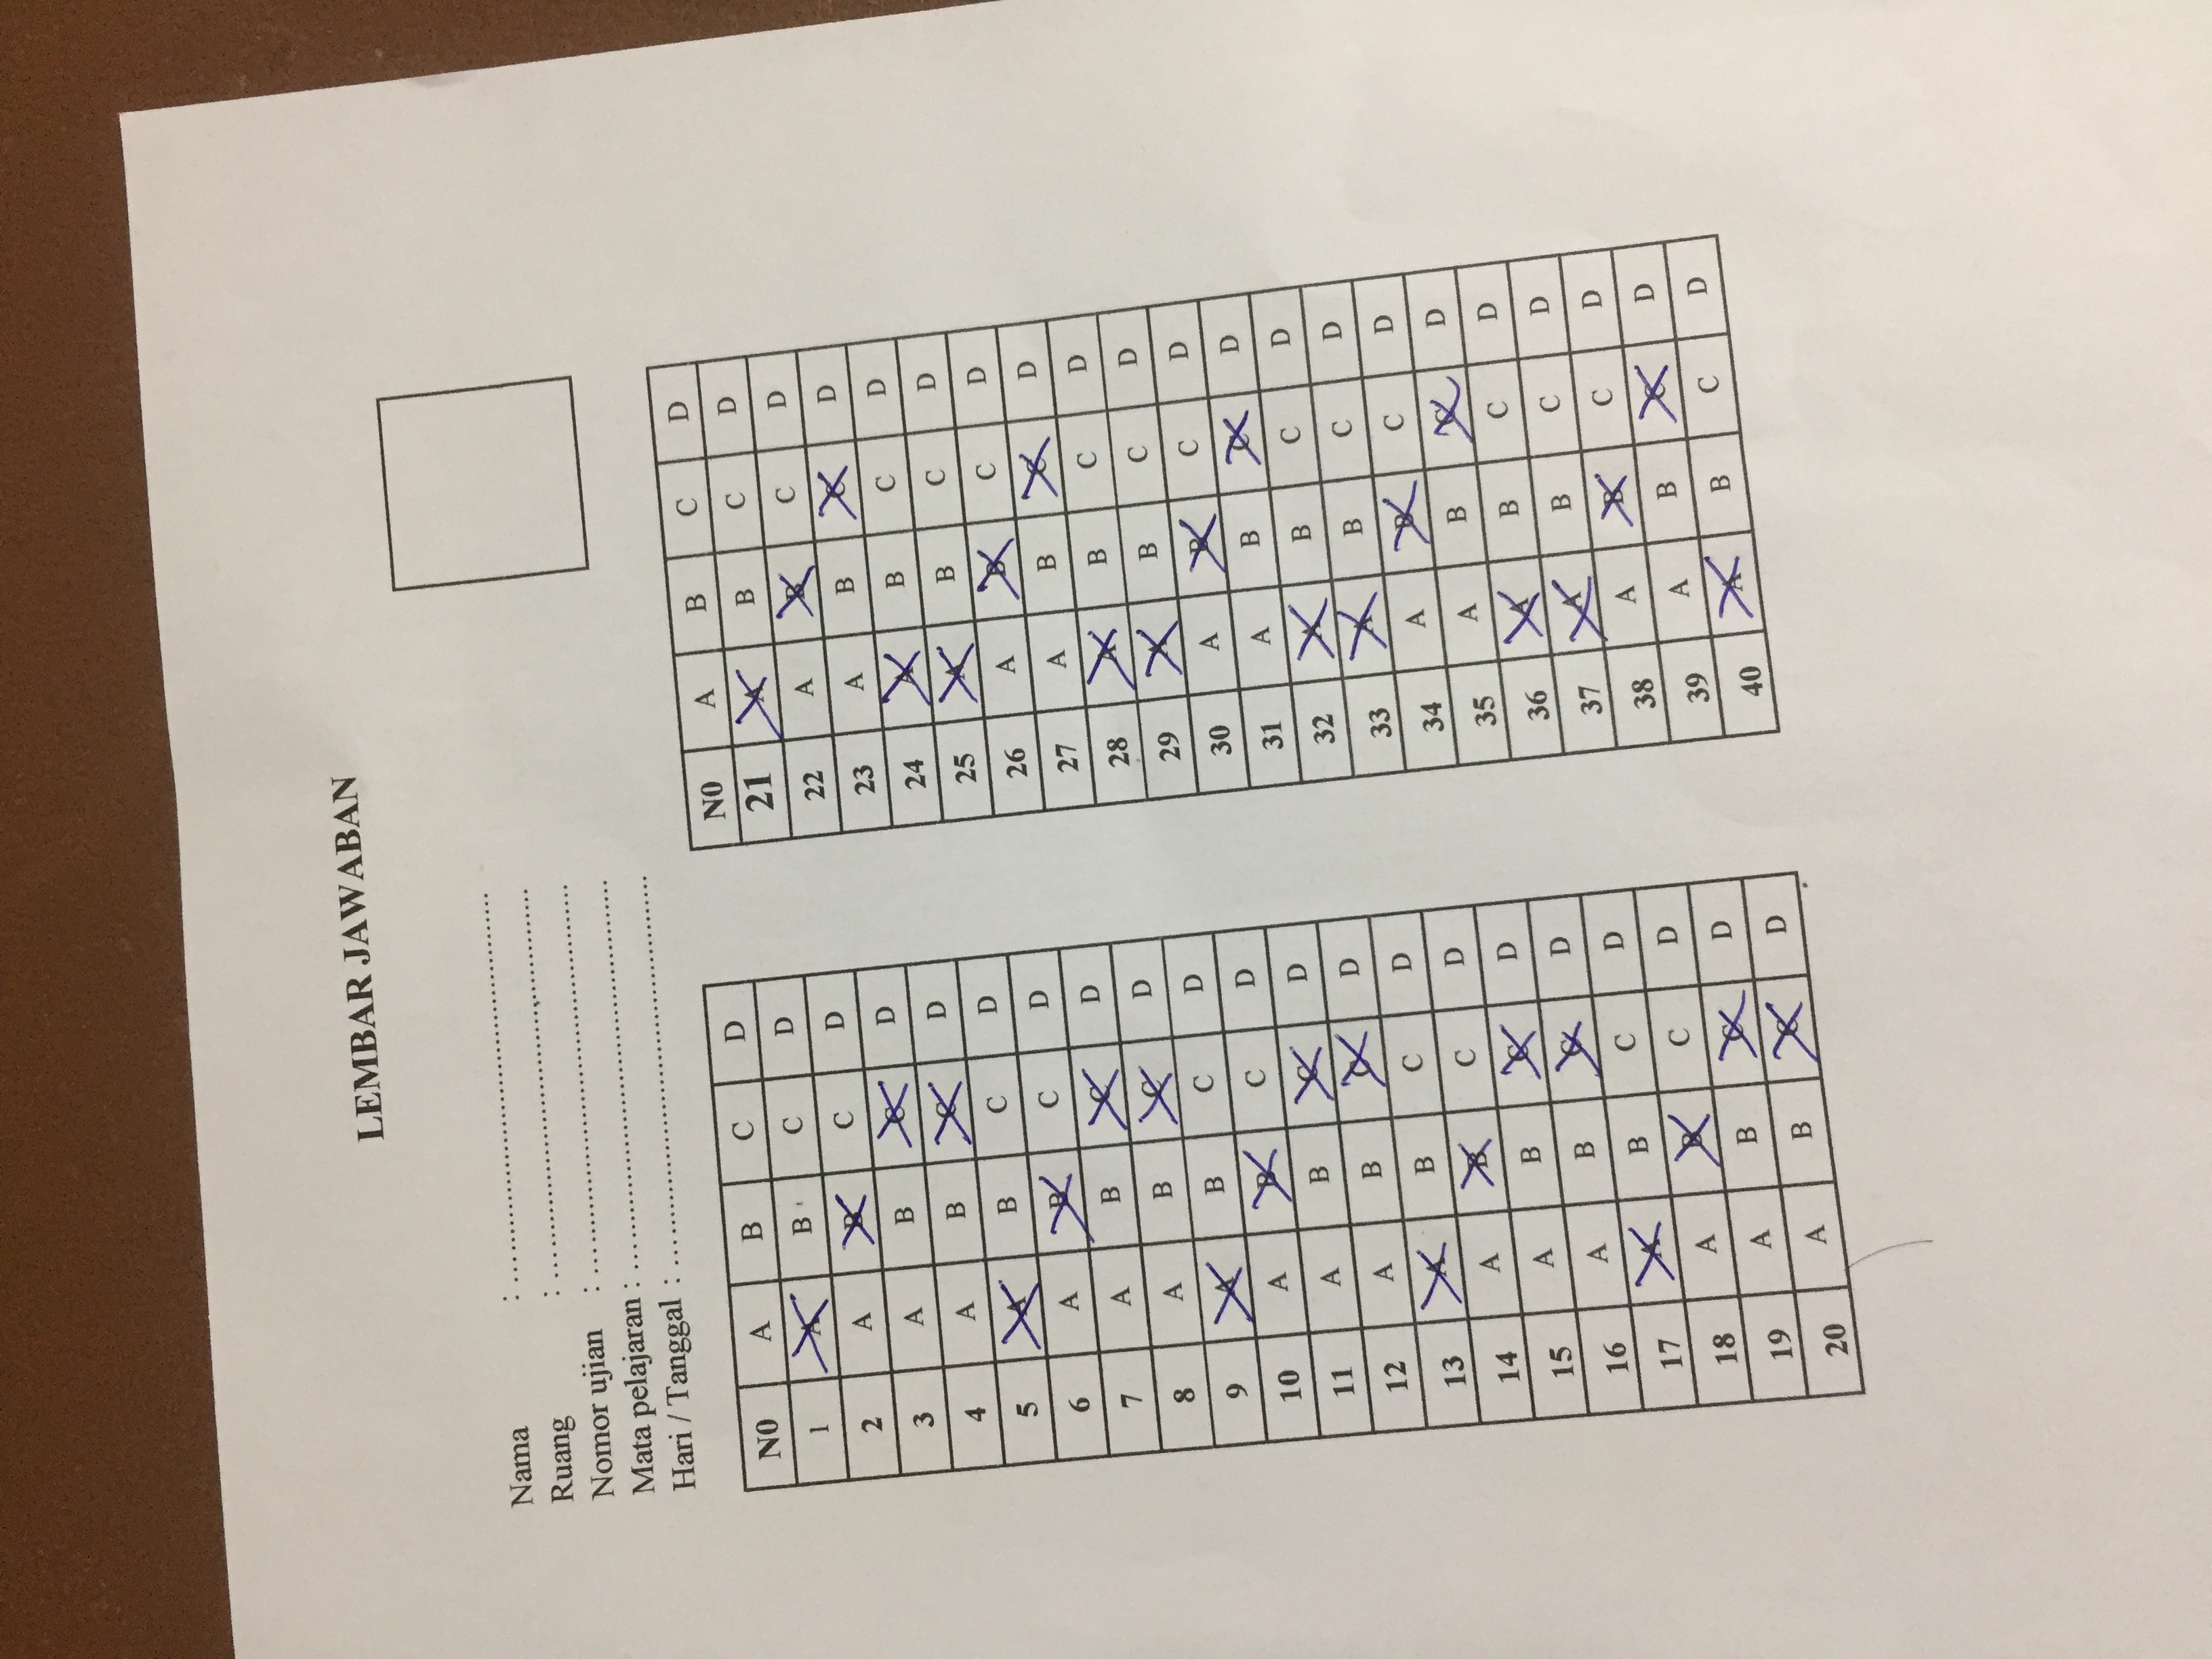 LEMBAR JAWABAN
Nama : ........................................................
Ruang : ........................................................
Nomor ujian : ........................................................
Mata pelajaran : ........................................................
Hari / Tanggal : ........................................................
N0 A B C D
1 A B C D
2 A B C D
3 A B C D
4 A B C D
5 A B C D
6 A B C D
7 A B C D
8 A B C D
9 A B C D
10 A B C D
11 A B C D
12 A B C D
13 A B C D
14 A B C D
15 A B C D
16 A B C D
17 A B C D
18 A B C D
19 A B C D
20 A B C D
N0 A B C D
21 A B C D
22 A B C D
23 A B C D
24 A B C D
25 A B C D
26 A B C D
27 A B C D
28 A B C D
29 A B C D
30 A B C D
31 A B C D
32 A B C D
33 A B C D
34 A B C D
35 A B C D
36 A B C D
37 A B C D
38 A B C D
39 A B C D
40 A B C D